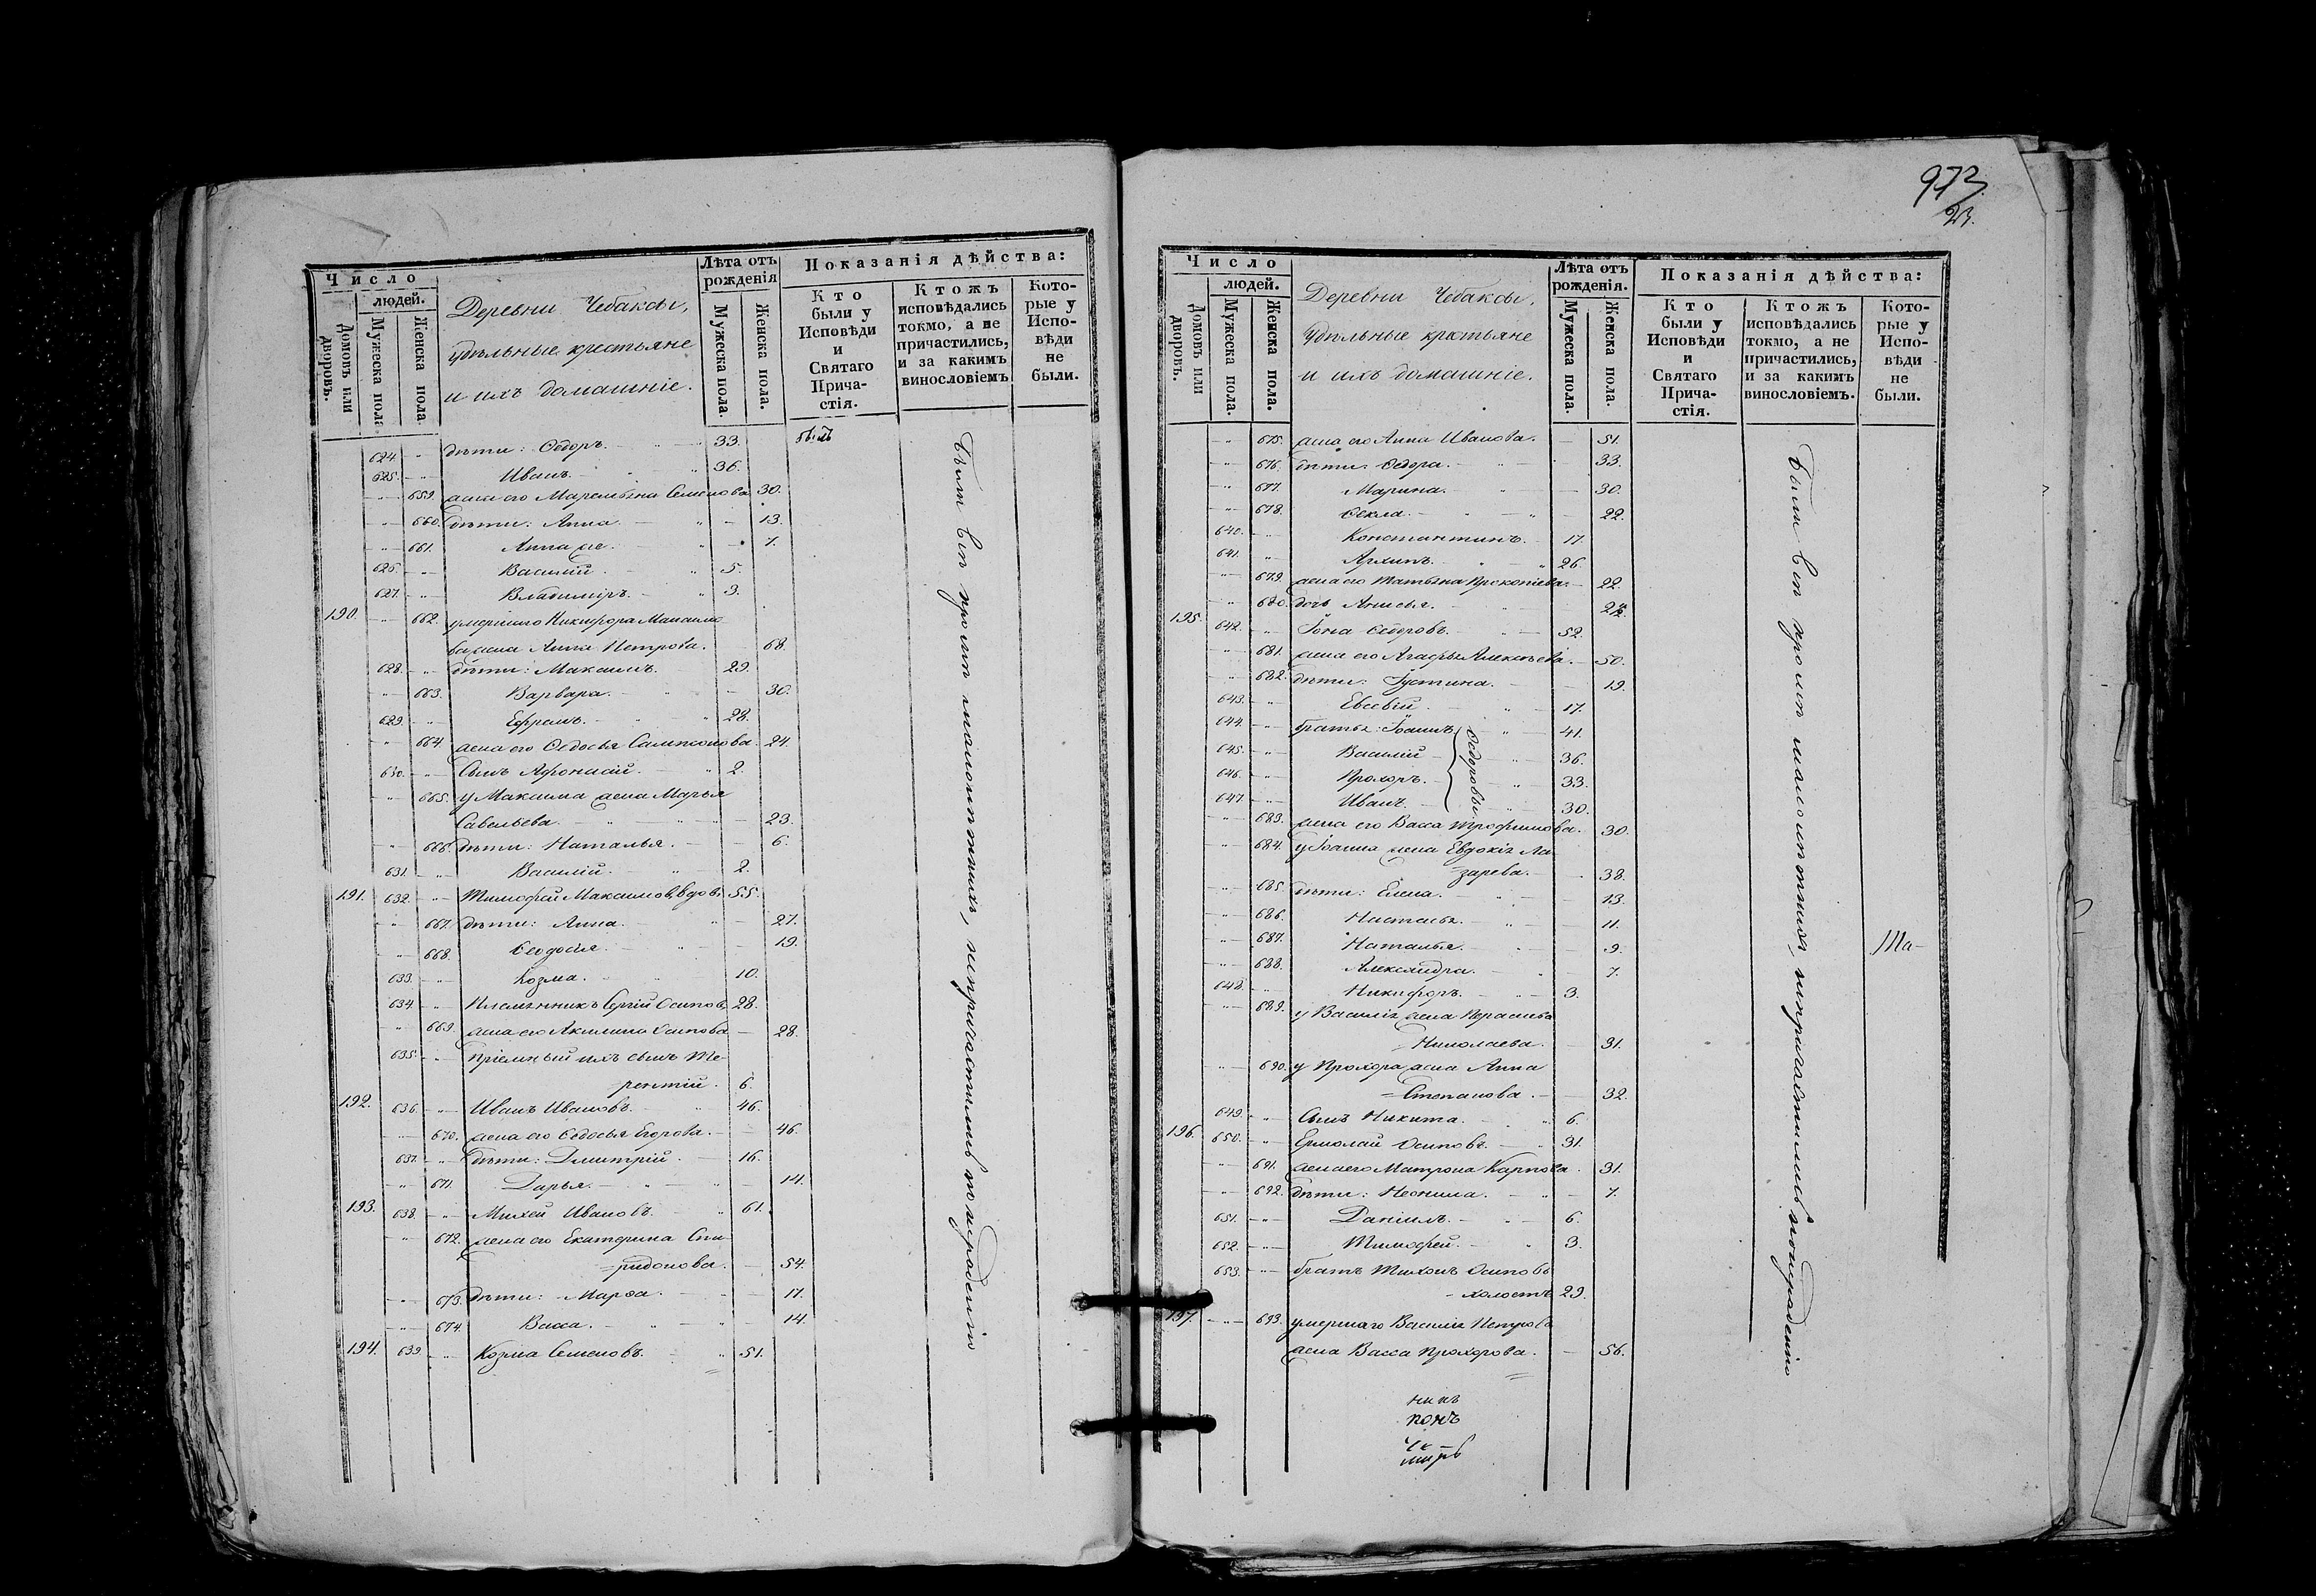 Число
людей.
Домовъ или дворовъ.
Мужеска пола.
Женска пола.
Деревни Чебаксы,
удѣльные крестьяне
и ихъ домашніе.
Лѣта отъ рожденія
Мужеска пола.
Женска пола.
Показанія дѣйства:
Кто были у Исповѣди и Святаго Прича-стія.
Ктожъ исповѣдались токмо, а не причастились, и за какимъ винословіемъ
Кото-рые у Испо-вѣди не были.
624. дѣти: Ѳедоръ. 33. былъ
625. Иванъ. 36.
659. жена его Маремьяна Семенова 30.
660. дѣти: Анна 13.
661. Анна же. 7.
626. Василій. 5.
627. Владиміръ. 3.
190. 662. умершаго Никифора Максимо
ва жена Анна Петрова. 68.
628. дѣти: Максимъ. 29.
663. Варвара. 30.
629. Ефремъ. 28.
664. жена его Ѳедосья Сампсонова. 24.
630. Сынъ Афонасій. 2.
665. у Максима жена Марья
Савельева. 23.
666. дѣти: Наталья. 6.
631. Василій. 2.
191. 632. Тимофей Максимовъ, вдовъ 55.
667. дѣти: Анна. 27.
668. Ѳеодосія. 19.
633. Козма. 10.
634. Племянникъ Сергій Осиповъ 28.
669. жена его Акилина Осипова 28.
635. пріемный ихъ сынъ Те-
рентій. 6.
192. 636. Иванъ Ивановъ. 46.
670. жена его Ѳедосья Егорова. 46.
637. дѣти: Дмитрій. 16.
671. Дарья. 14.
193. 638. Михей Ивановъ. 61.
672. жена его Екатерина Спи-
=ридонова. 54.
673. дѣти: Марѳа. 17.
674. Васса. 14
194. 639. Козма Семеновъ. 51.
были всѣ кромѣ малолѣтнихъ, непричастились по нерадению
973.
23.
Число
людей.
Домовъ или дворовъ.
Мужеска пола.
Женска пола.
Деревни Чебаксы,
Удѣльные крстьяне
и ихъ домашніе.
Лѣта отъ рожденія.
Мужеска пола.
Женска пола.
Показанія дѣйства:
Кто были у Исповѣди и Святаго Прича-стія.
Ктожъ исповѣдались токмо, а не причастились, и за какимъ винословіемъ.
Кото-рые у Испо-вѣди не были.
675. жена его Анна Иванова. 51.
676. дѣти: Ѳедора. 33.
677. Марина. 30.
678. Ѳекла. 22.
640. Константинъ. 17.
641. Архипъ. 26.
679. жена его Татьяна Прокопіева. 22.
680. дочь Анисья.
195. 642. Іона Ѳедоровъ. 52.
681. жена его Агафья Алексѣева. 50.
682. дѣти: Іустина. 19.
643. Евсевій. 17.
644. братья: Іоаннъ 41.
645. Василій 36.
646. Прохоръ. 33.
647. Иванъ. 30.
Ѳедоровы
683. жена его Васса Трофимова. 30.
684. у Іоанна жена Евдокія Ла-
=зарева. 38.
685. дѣти: Елена. 13.
686. Настасья. 11.
687. Наталья. 9.
688. Александра. 7.
648. Никифоръ. 3.
689. у Василія жена Параскева
=Николаева. 31.
690. у Прохора жена Анна
=Степанова. 32.
649. Сынъ Никита. 6.
196. 650. Ермолай Осиповъ. 31.
691. жена его Матрона Карпова. 31.
692. дѣти: Неонила. 7.
651. Даніилъ. 6.
652. Тимофей. 3.
653. братъ Тихонъ Осиповъ
- холостъ 29.
197. 693. умершаго Василія Петрова
жена Васса Прохорова. 56.
были всѣ кромѣ малолѣтнихъ, непричастились по нерадению